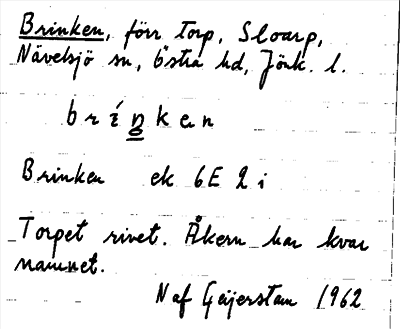 Brinken, förr torp, Sloarp,
Nävelsjö sn, Östra hd, Jönk. l.
bríngken
Brinken ek 6E 2 i
Torpet rivet. Åkern har kvar
namnet.
N af Geijerstam 1962